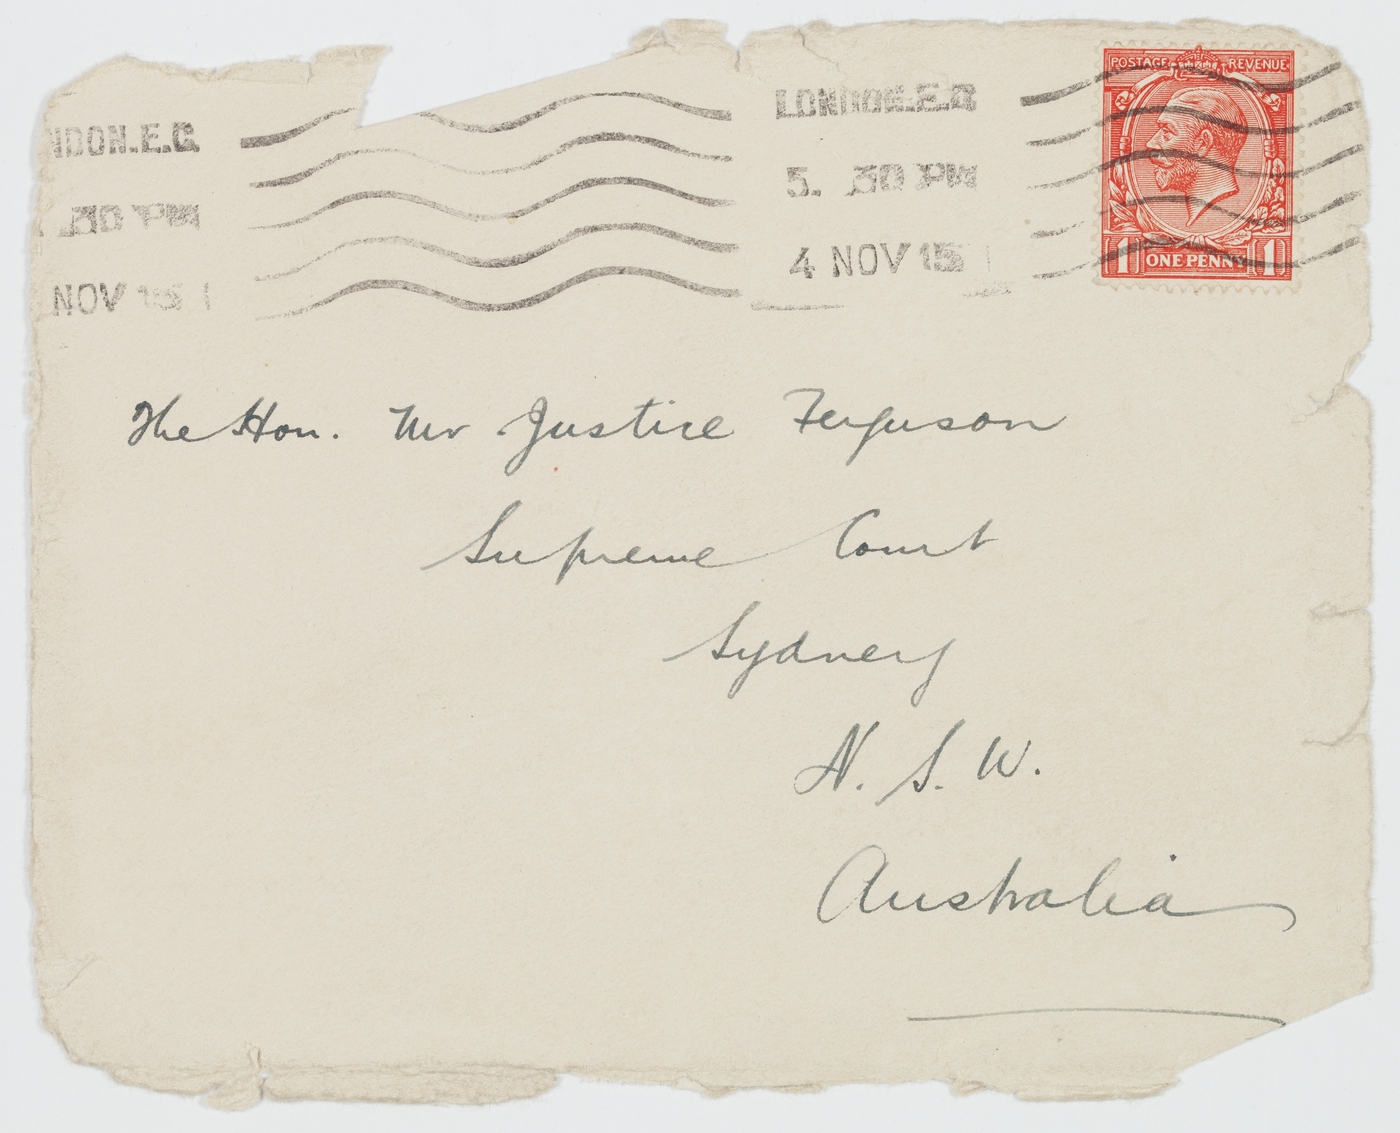 NDON.E.C.
30 PM
NOV 15
LONDON.E.C.
5. 30 PM
4 NOV 15
POSTAGE REVENUE
1 ONE PENNY 1
The Hon. Mr Justice Ferguson
Supreme Court
Sydney
N. S. W.
Australia